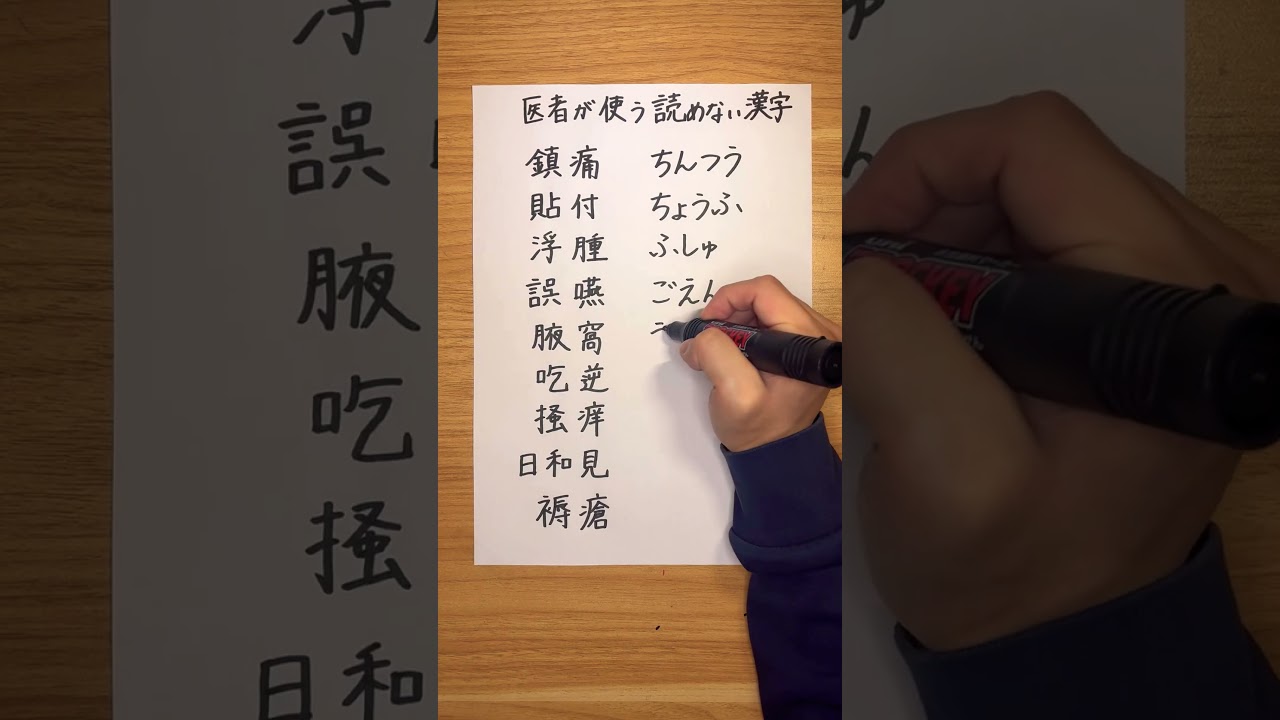 医者が使う読めない漢字
鎮痛 ちんつう
貼付 ちょうふ
浮腫 ふしゅ
誤嚥 ごえん
腋窩
吃逆
掻痒
日和見
褥瘡